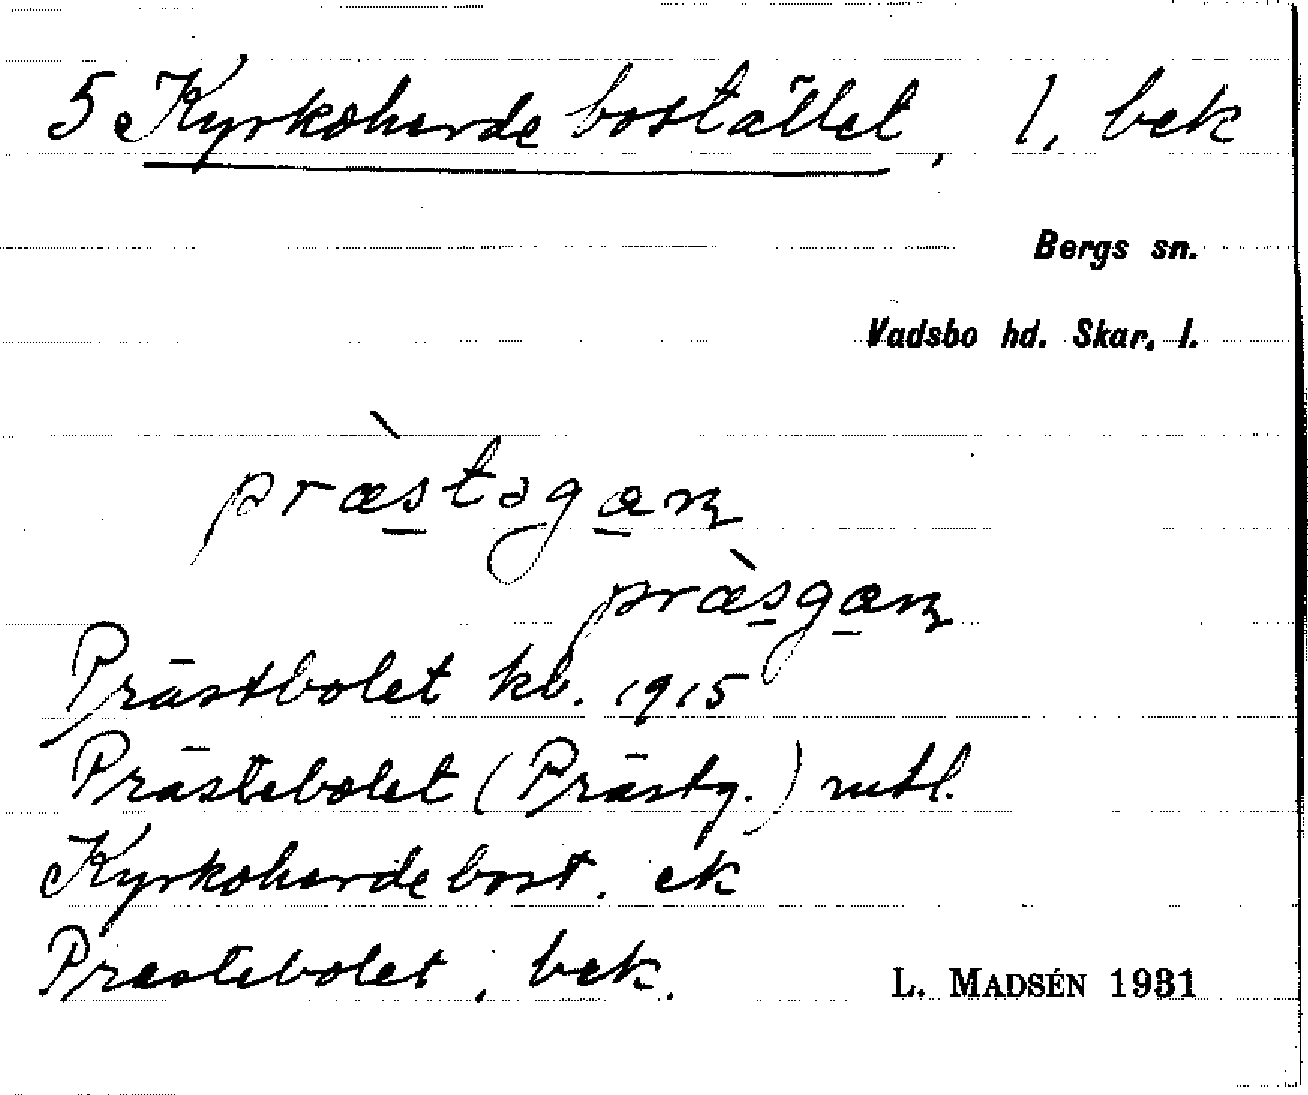 5 Kyrkoherdebostället, 1, bek
Bergs sn.
Vadsbo hd. Skar. l.
præ̀stəgæn
præ̀sgæn
Prästbolet kb. 1915
Prästebolet (Prästg.) mtl.
Kyrkoherdebost. ek
Prestebolet, bek.
L. MADSÉN 1931